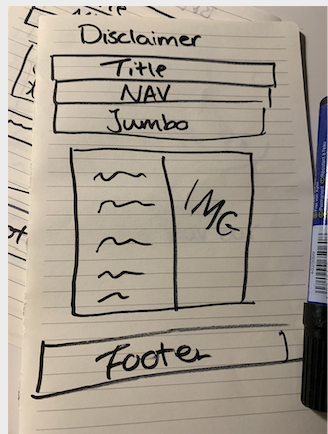 Disclaimer
Title
NAV
Jumbo
IMG
Footer